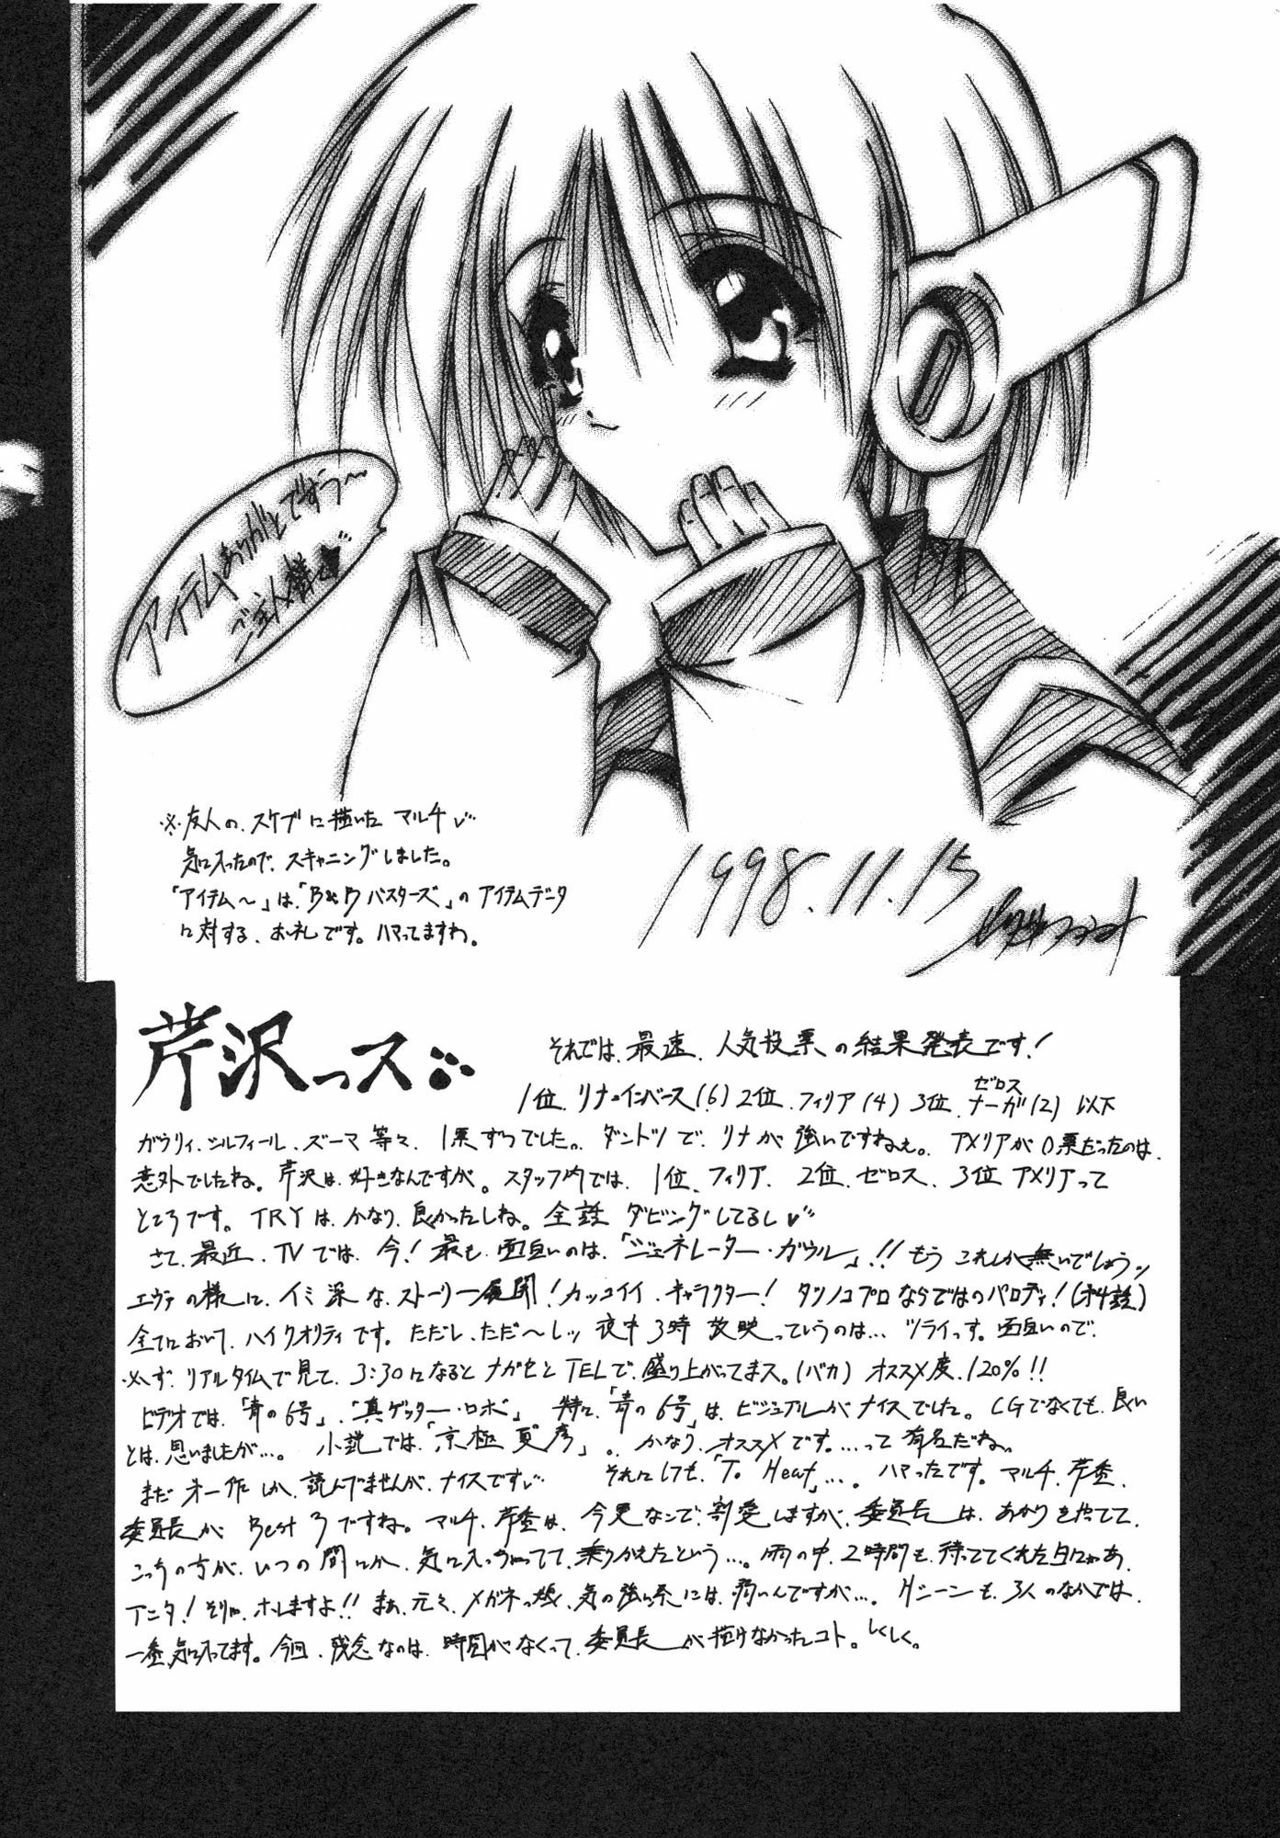 アイテムありがとですぅ〜
ご主人様
※友人の、スケブに描いた マルチ
気に入ったので、スキャニングしました。
「アイテム〜」は「B&Dバスターズ」の アイテムデータ
に対する、お礼です。ハマってますわ。
1998.11.15
芹沢っス
それでは、最速、人気投票の結果発表です!
1位、リナ=インバース(6) 2位、フィリア(4) 3位、ゼロス ナーガ(2) 以下
ガウリィ、シルフィール、ズーマ等々、1票ずつでした。ダントツで、リナが強いですねぇ。アメリアが0票だったのは、
意外でしたね。芹沢は、好きなんですが。スタッフ内では、1位、フィリア、2位、ゼロス、3位 アメリアって
ところです。TRYは、かなり、良かったしね。全話 ダビングしてるし
さて、最近、TVでは、今!最も、面白いのは、「ジェネレーター・ガウル」!!もう これしか無いでしょうッ
エヴァの様に、イミ深な、ストーリー展開!カッコイイ、キャラクター!タツノコプロならではのパロディ!(才4話)
全てにおいて、ハイクオリティです。ただし、ただ〜しッ 夜中3時 放映っていうのは…ツライっす。面白いので、
必ず、リアルタイムで見て、3:30になると ナガセとTELで、盛り上がってまス。(バカ) オススメ度、120%!!
ビデオでは、「青の6号」、「真ゲッター・ロボ」 特に、「青の6号」は、ビジュアルがナイスでした。CGでなくても、良い
とは、思いましたが…。小説では、「京極夏彦」。かなり、オススメです。…って 有名だね。
まだ 才一作しか、読んでませんが、ナイスです それにしても、「To Heart」…。ハマったです。マルチ、芹香、
委員長が Best 3ですね。マルチ、芹香は、今更なので、割愛しますが、委員長は、あかりを捨てて、
こっちの方が、いつの間にか、気に入っちゃってて、乗りかえたという…。雨の中、2時間も、待っててくれた日にゃあ、
アニタ!そりゃ、ホレますよ!!まぁ、元々、メガネっ娘、気の強い系には、弱いんですが…。Hシーンも、3人のなかでは、
一番、気に入ってます。今回、残念なのは、時間がなくって、委員長が描けなかったコト。しくしく。